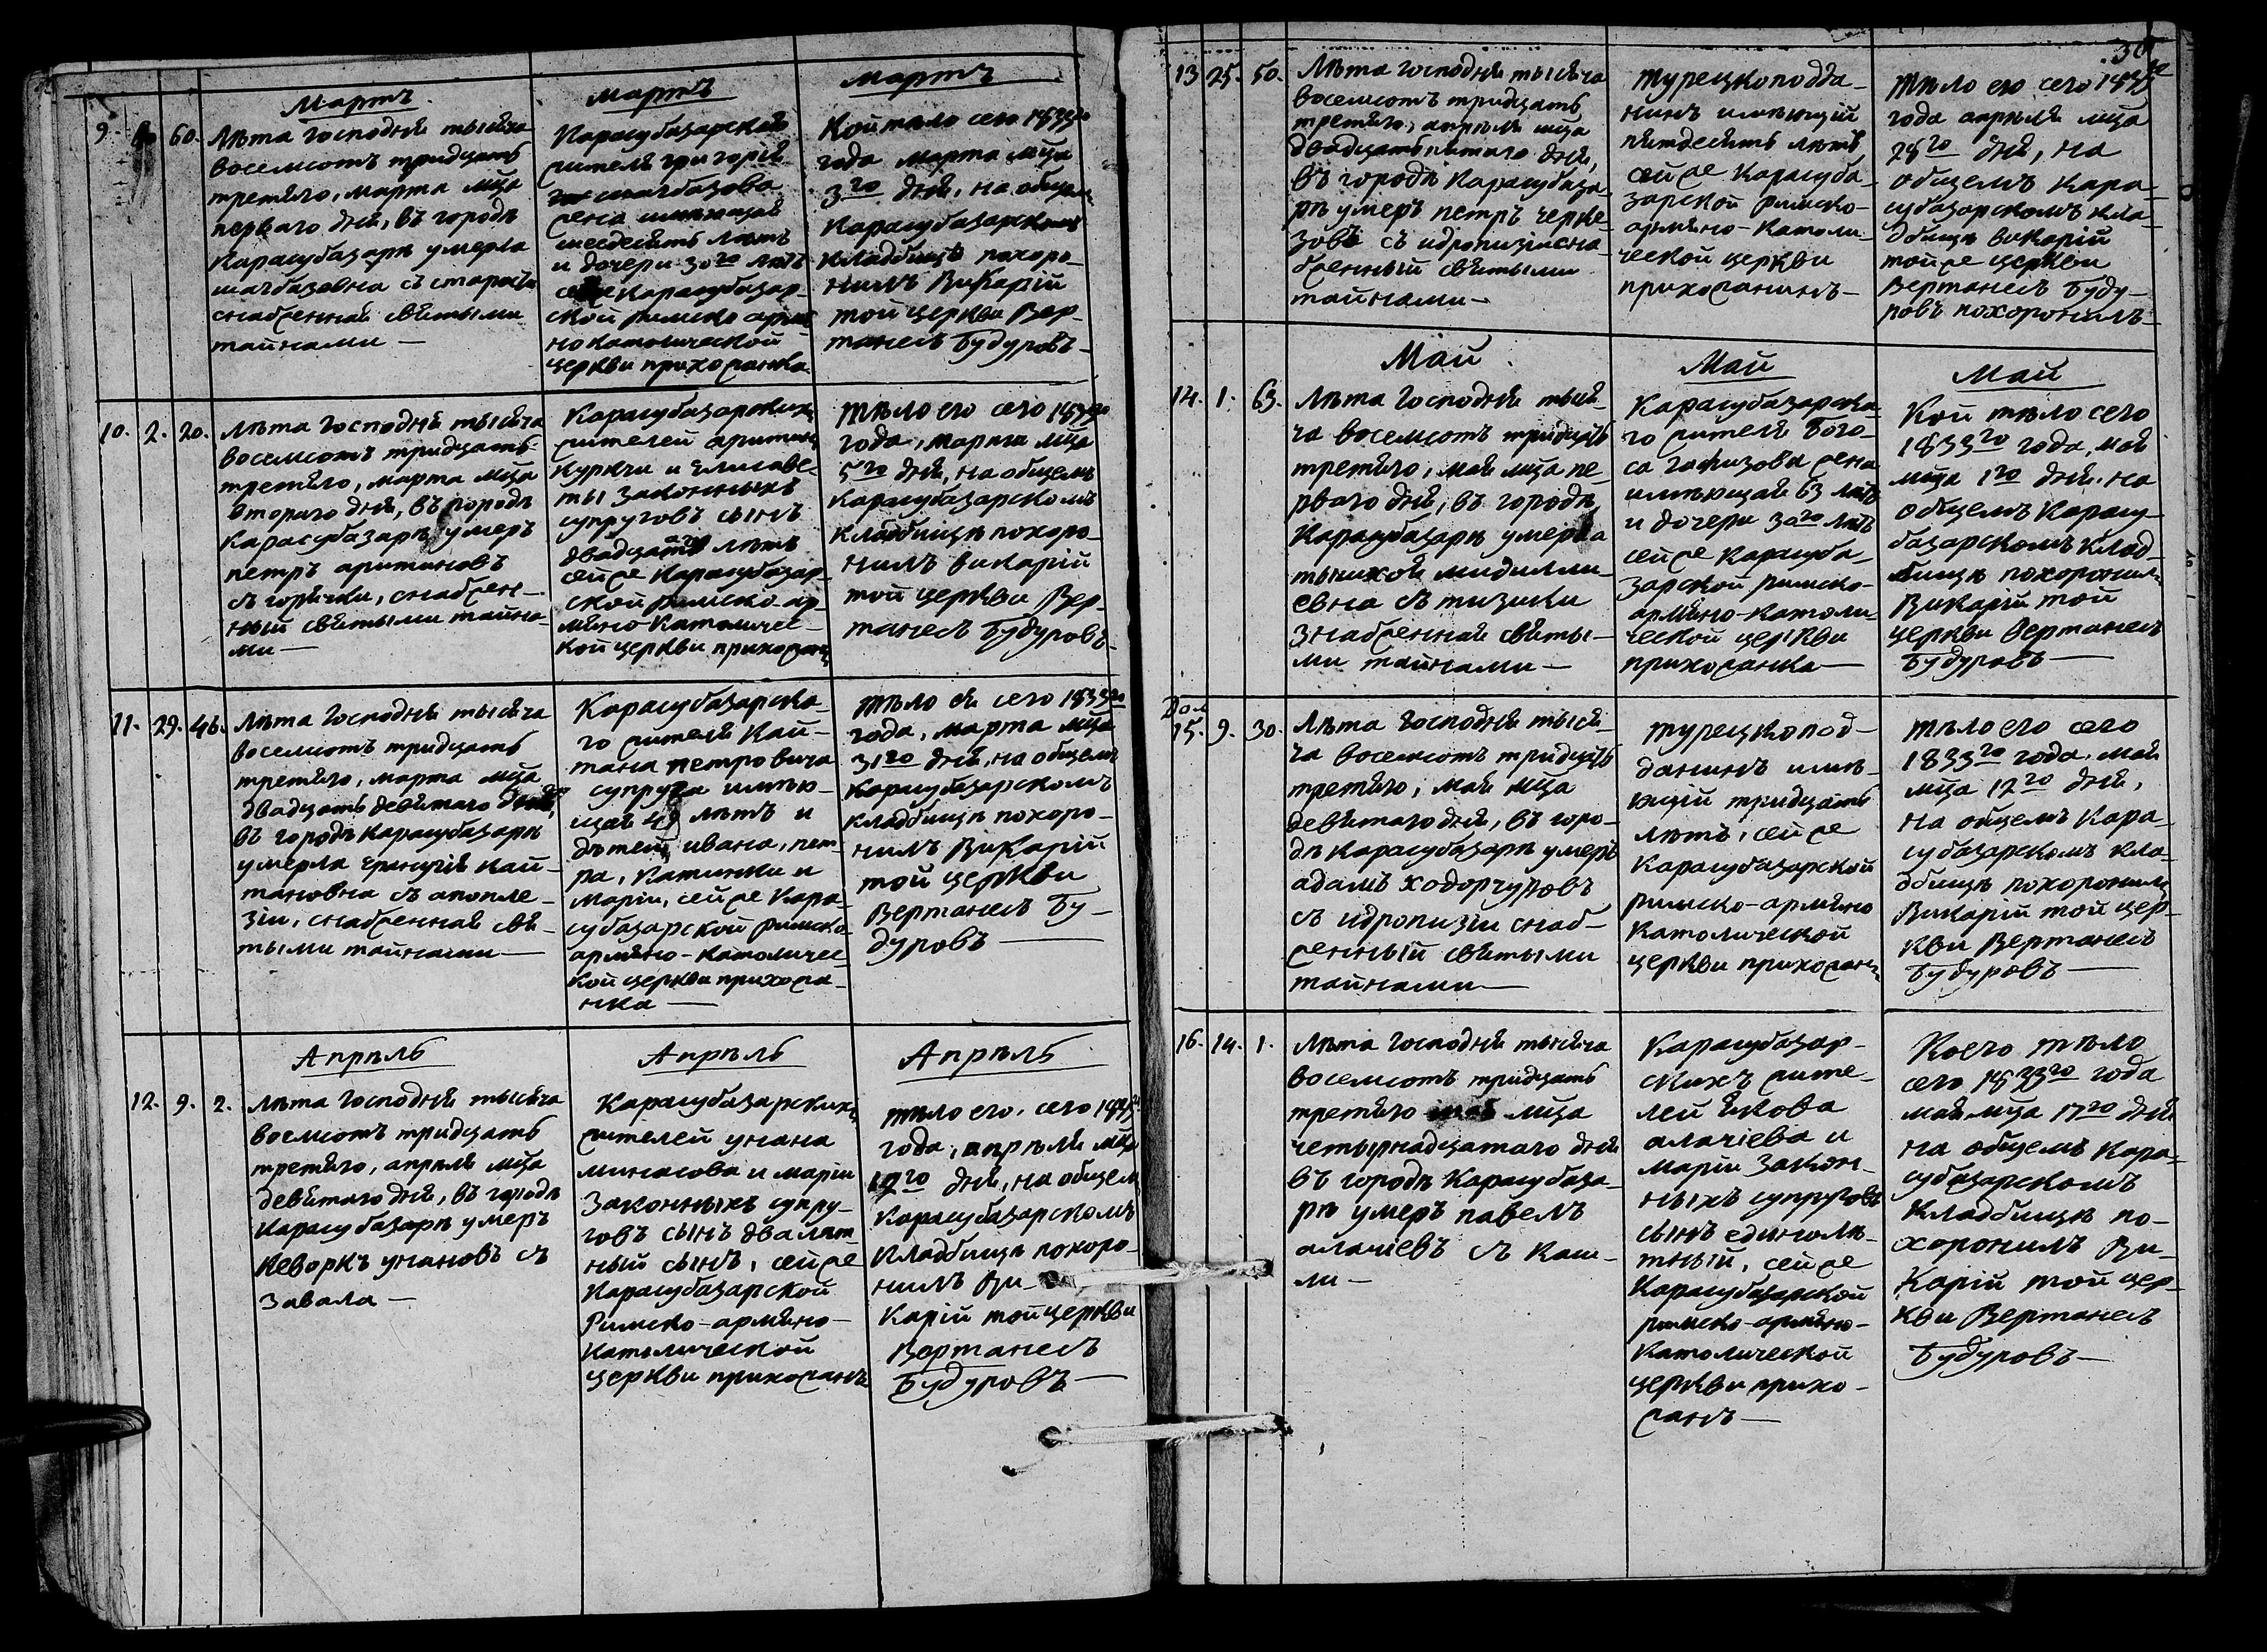 Мартъ
Мартъ
Мартъ
9. 60.
Лѣта Господня тысяча
восемсотъ тридцать
третяго, марта мца
перваго дня, въ городѣ
Карасубазарѣ умерла
съ старости
снабженная святыми
тайнами —
Карасубазарскаго
жителя григорія
жена имѣющая
шесдесять лѣтъ
и дочери 30го лѣтъ
Карасубазар-
ской римско армя
нокатолической
церкви прихожанка
Коий тѣло сего 1833го
года марта мца
3го дня, на общем
Карасубазарскомъ
кладбищѣ похоро-
нилъ Викарій
той церкви Вер-
танесъ Будуровъ —
10. 2. 20.
Лѣта Господня тысяча
восемсотъ тридцать
третяго, марта мца
втораго дня, въ городѣ
Карасубазарѣ умеръ
петръ аритиновъ
съ горячки, снабжен-
ный святыми тайна-
ми —
Карасубазарских
жителей аритина
Куркчи и Елисаве-
ты законныхъ
супруговъ сынъ
двадцати лѣтъ
сей же Карасубазар-
ской римско-ар-
мяно католичес-
кой церкви прихожанъ
Тѣло его сего 1833го
года, марта мца
5го дня, на общемъ
Карасубазарскомъ
кладбищѣ похоро-
нилъ викарій
той церкви Вер-
танесъ Будуровъ —
11. 29. 46.
Лѣта Господня тысяча
восемсотъ тридцать
третяго, марта мца
двадцать девятаго дня,
въ городѣ Карасубазарѣ
умерла Ерангуля Кай-
тановна съ апопле-
зіи, снабженная свя-
тыми тайнами —
Карасубазарска-
го жителя Кай-
тана петровича
супруга имѣю-
щая лѣтъ и
дѣтей ивана, пет-
ра, катинки и
маріи, сей же Кара-
субазарской римско-
армяно-католичес-
кой церкви прихожа-
нка —
Тѣло ея сего 1833го
года, марта мца
31го дня, на общемъ
Карасубазарскомъ
кладбищѣ похоро-
нилъ Викарій
той церкви
Вертанесъ Бу-
дуровъ —
Апрѣль
Апрѣль
Апрѣль
12. 9. 2.
Лѣта Господня тысяча
воемсотъ тридцать
третяго, апрѣля мца
девятаго дня, въ городѣ
Карасубазарѣ умеръ
Кеворкъ унановъ съ
завала —
Карасубазарских
жителей унана
минасова и маріи
законныхъ супру-
говъ сынъ двалѣт-
ный сынъ, сей же
Карасубазарской
Римско-армяно-
католической
церкви прихожанъ
тѣло его, сего
года, апрѣля мца
дня, на общем
Карасубазарскомъ
кладбищѣ похоро-
нилъ Ви-
карій той церкви
Вертанесъ
Будуровъ —
13. 25. 50.
Лѣта Господня тысяча
восемсотъ тридцать
третяго, апрѣля мца
двадцатьпятаго дня,
въ городѣ Карасубаза-
рѣ умеръ петръ черке-
зовъ съ идропизіи сна-
бженный святыми
тайнами —
Турецкоподда-
нинъ имѣющій
пятдесять лѣтъ
сей же Карасуба-
зарской римско-
армяно-католи-
ческой церкви
прихожанинъ —
Тѣло его сего
года апрѣля мца
28го дня, на
общемъ Кара-
субазарскомъ кла-
дбищѣ викарій
той же церкви
Вертанесъ Буду-
ровъ похоронилъ —
Май
Май
Май
14. 1. 63.
Лѣта Господня тыся-
ча восемсотъ тридцать
третяго, мая мца пе-
рваго дня, въ городѣ
Карасубазарѣ умерла
мидилли-
евна съ тизики
знабженная святы-
ми тайнами —
Карасубазарска-
го жителя Бого-
са гафизова жена
имѣющая 63 лѣтъ
и дочери лѣтъ
сей же Карасуба-
зарской римско-
армяно-католи-
ческой церкви
прихожанка —
Коий тѣло сего
1833го года, мая
мца 1го дня, на
общемъ Карасу-
базарскомъ клад-
бищѣ похоронилъ
Викарій той
церкви Вертанесъ
Будуровъ —
15. 9. 30.
Лѣта Господня тыся-
ча восемсотъ тридцать
третяго, мая мца
девятаго дня, въ горо-
дѣ Карасубазарѣ умеръ
адамъ ходорчуровъ
съ идропизіи снаб-
женный святыми
тайнами —
турецкопод-
данинъ имѣ-
ющій тридцать
лѣтъ, сей же
Карасубазарской
римско-армяно
католической
церкви прихожанъ
тѣло его сего
1833го года, мая
мца 12го дня,
на общемъ Кара-
субазарскомъ кла-
дбищѣ похоронилъ
Викарій той цер-
кви Вертанесъ
Будуровъ —
16. 14. 1.
Лѣта Господня тысяча
восемсотъ тридцать
третяго мая мца
четырнадцатаго дня
въ городѣ Карасубаза-
рѣ умеръ павелъ
алачіевъ съ каш-
ли —
Карасубазар-
скихъ жите-
лей якова
алачіева и
маріи закон-
ныхъ супруговъ
сынъ единолѣ-
тный, сей же
Карасубазарской
римско-армяно-
католической
церкви прихо-
жанъ —
Коего тѣло
сего 1833го года
мая мца 17го дня
на общемъ Кара-
субазарскомъ
кладбищѣ по-
хоронилъ Ви-
карій той цер-
кви Вертанесъ
Будуровъ —